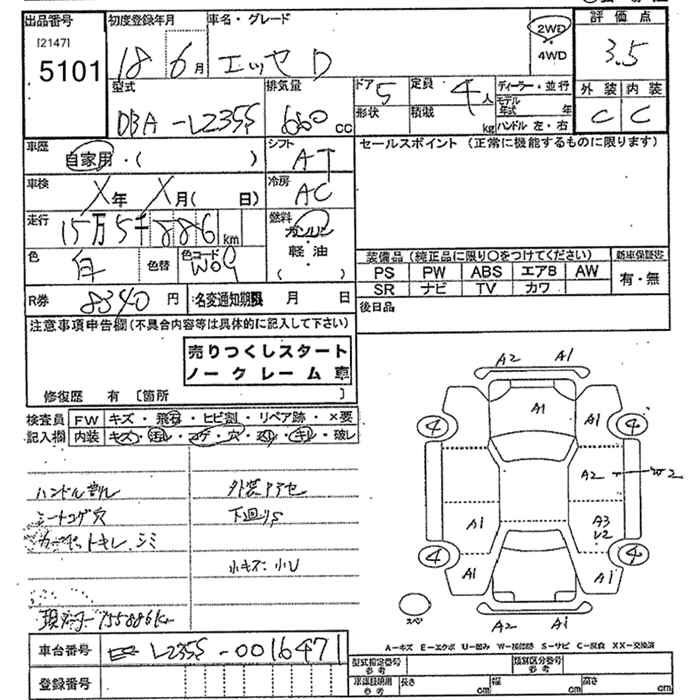 出品番号 初度登録年月 車名・グレード 2WD 評価点
[2147] 4WD
5101 18 6月 エッセD 3.5
型式 排気量 ドア5 定員 4人 ディーラー・並行 外装 内装
DBA-L235S 660cc 形状 積載 kg モデル年式 年 C C
ハンドル 左・右
車歴 自家用・( ) シフト AT セールスポイント (正常に機能するものに限ります)
車検 X年 X月( 日) 冷房 AC
走行 15万5千886km 燃料 ガソリン
軽油
( )
色 白 色替 色コード W09 装備品 (純正品に限り○をつけてください) 新車保証書
PS PW ABS エアB AW 有・無
SR ナビ TV カワ
R券 8340円 名変通知期限 月 日 後日品
注意事項申告欄(不具合内容等は具体的に記入して下さい)
売りつくしスタート
ノークレーム車
修復歴 有 [箇所 ]
検査員 FW キズ・飛石・ヒビ割・リペア跡・×要
記入欄 内装 キズ・汚レ・コゲ・穴・スレ・キレ・破レ
ハンドルスレ 外装アテセ
シートコゲ穴 下廻りS
カーペットキレ、シミ
小キズ・小U
現メーター155886km
車台番号 L235S-0016471
登録番号
A2 A1
A1 A1
4 4
A2 W2
A1 A3
U2
4 4
A1 A1
スペア
A2 A1
A-キズ E-エクボ U-凹み W-補修跡 S-サビ C-腐食 XX-交換済
型式指定番号 参考 類別区分番号 参考
車庫証明用 参考 長さ cm 幅 cm 高さ cm